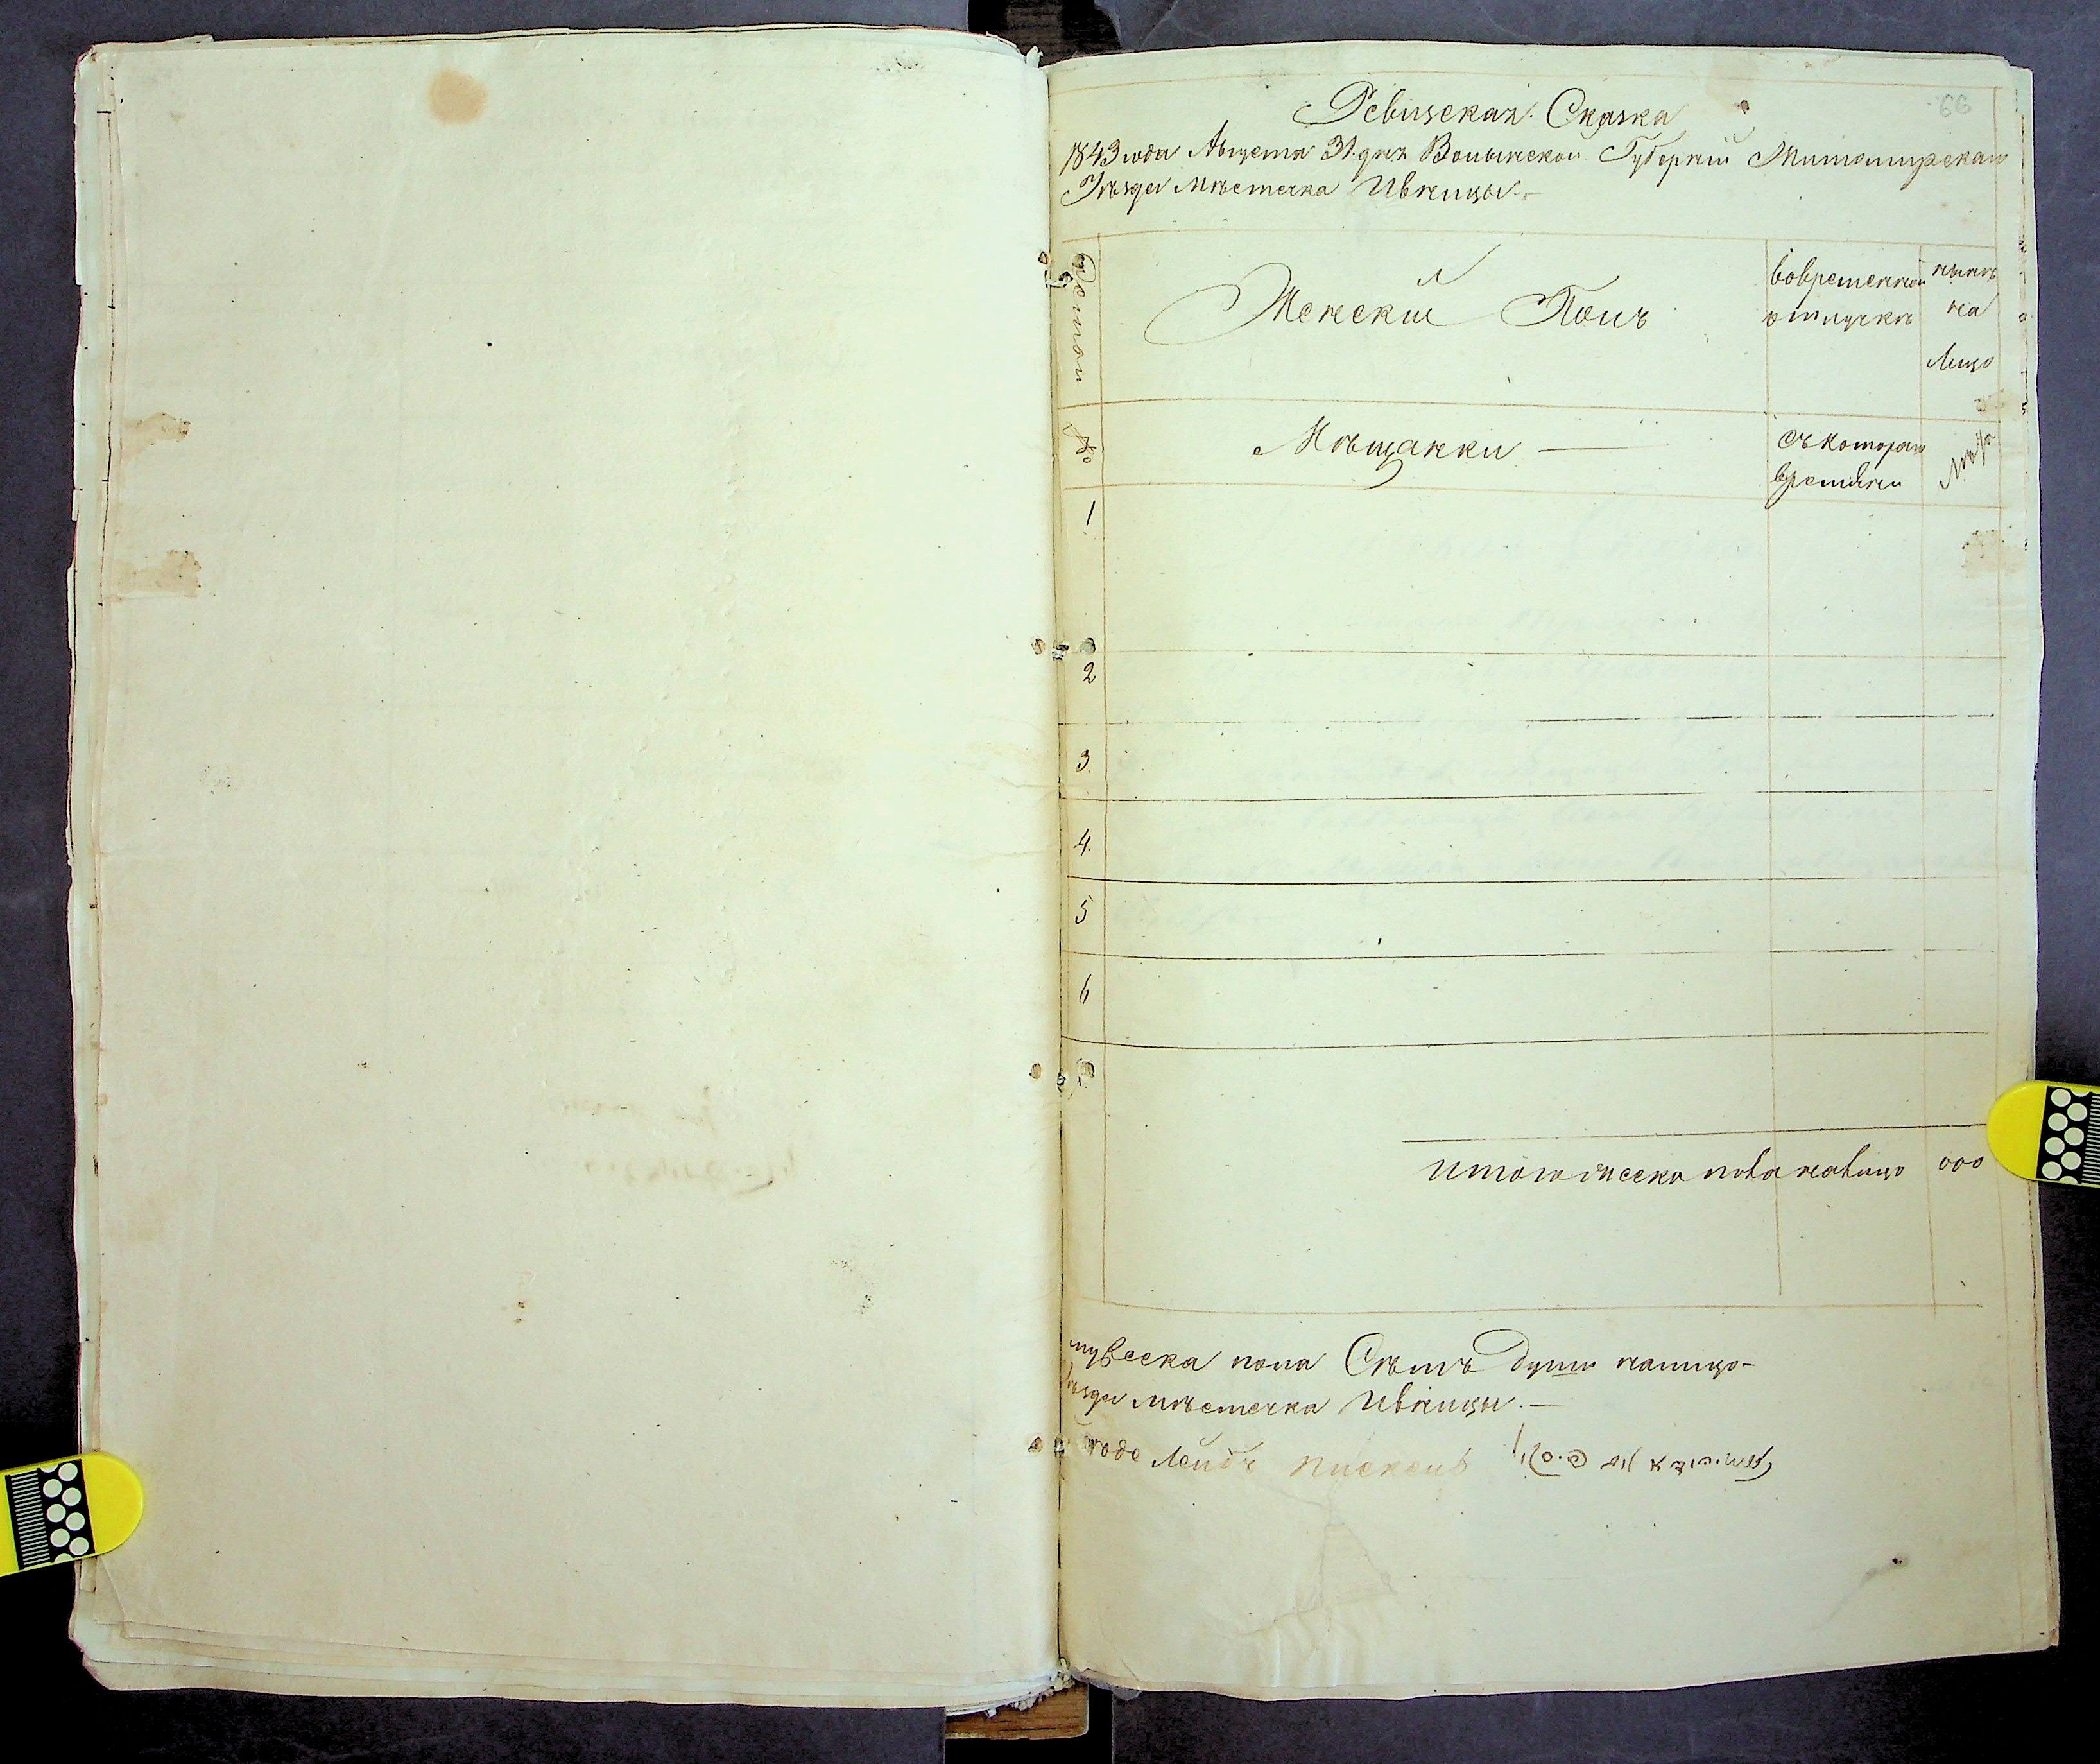 66
Ревизская Сказка
1843 года Августа 31 дня Волынской Губернiи Житомирскаго
Уѣзда мѣстечка Ивницы.—
Женскiй Полъ
вовременной
отлучкѣ
нынѣ
на
лицо
№
Мѣщанки —
съ котораго
времяни
лѣта
1
2
3
4
5
6
итого женска пола налицо 000
мужеска пола Съмъ душъ налицо-
уѣзда мѣстечка Ивницы.—
Лейбъ